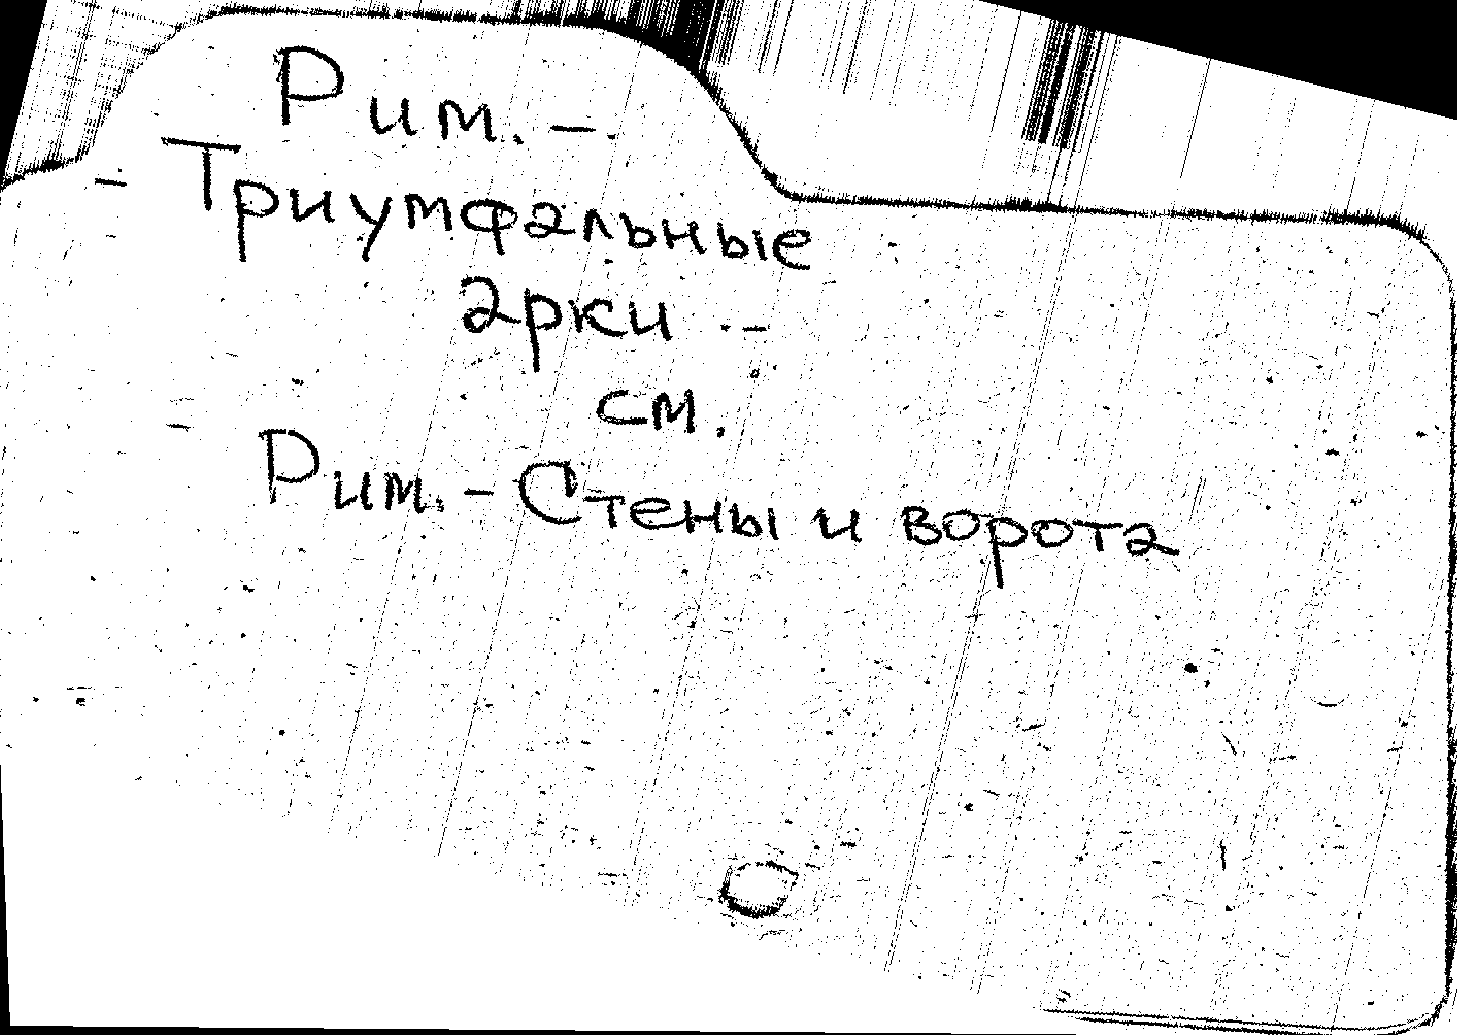 Рим. -.
- Триумфальные
арки .-
см.
Рим. - Стены и ворота